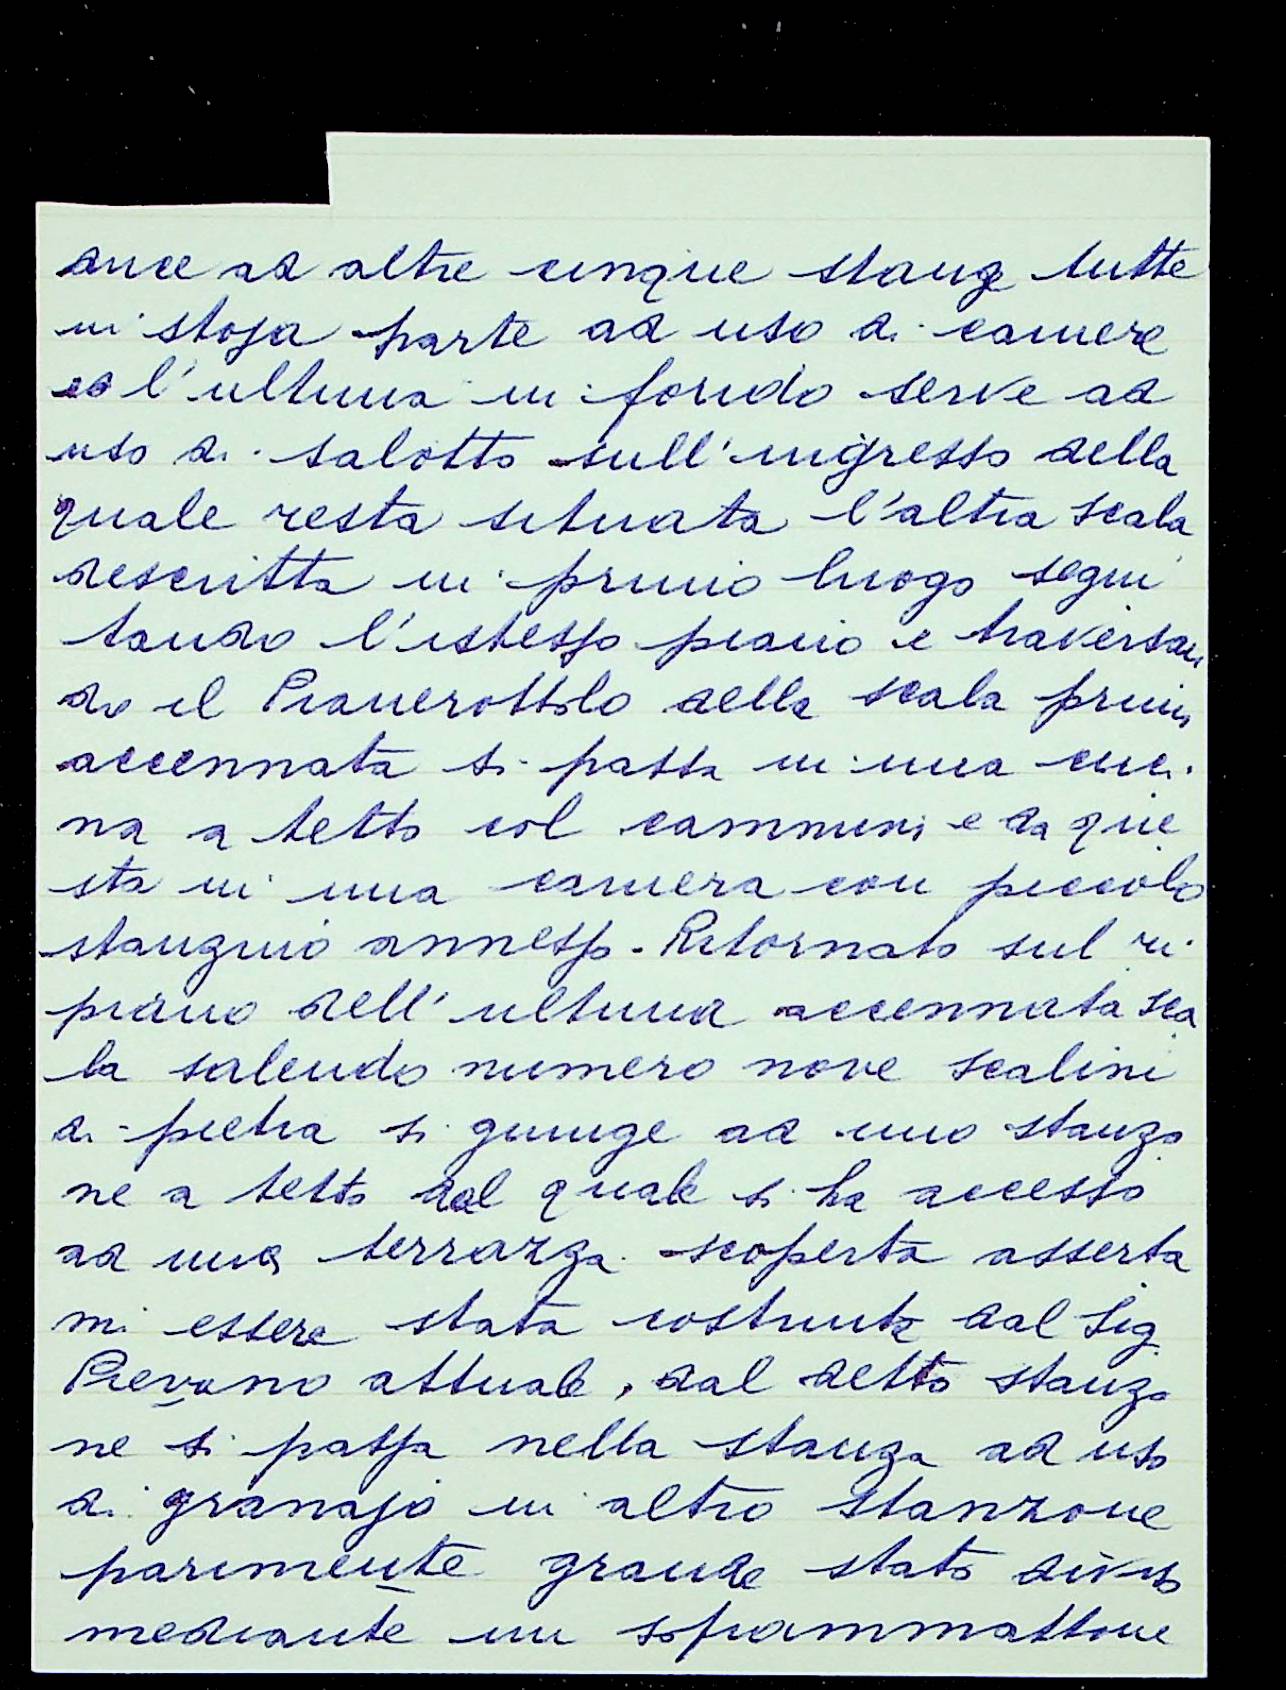 duce ad altre cinque stanze tutte
in stoja parte ad uso di camere
ed l'ultima in fondo serve ad
uso di salotto sull'ingresso della
quale resta situata l'altra scala
descritta in primo luogo segui
tando l'istesso piano e traversan
do il Pianerottolo della scala prima
accennata si passa in una cuci
na a tetto col cammino e da que
sta in una camera con piccolo
stanzino annesso. Ritornato sul ri
piano dell'ultima accennata sca
la salendo numero nove scalini
di pietra si giunge ad uno stanzo
ne a tetto dal quale si ha accesso
ad una terrazza scoperta asserta
mi essere stata costruita dal Sig
Pievano attuale, dal detto stanzo
ne si passa nella stanza ad uso
di granajo in altro stanzone
parimente grande stato diviso
mediante un soprammattone